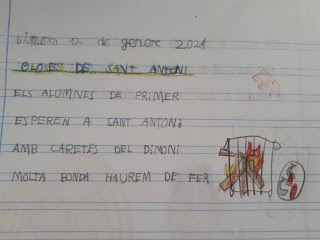 Dimarts 12 de gener 2021
GLOSES DE SANT ANTONI
ELS ALUMNES DE PRIMER
ESPEREN A SANT ANTONI
AMB CARETES DEL DIMONI
MOLTA BONDA HAUREM DE FER